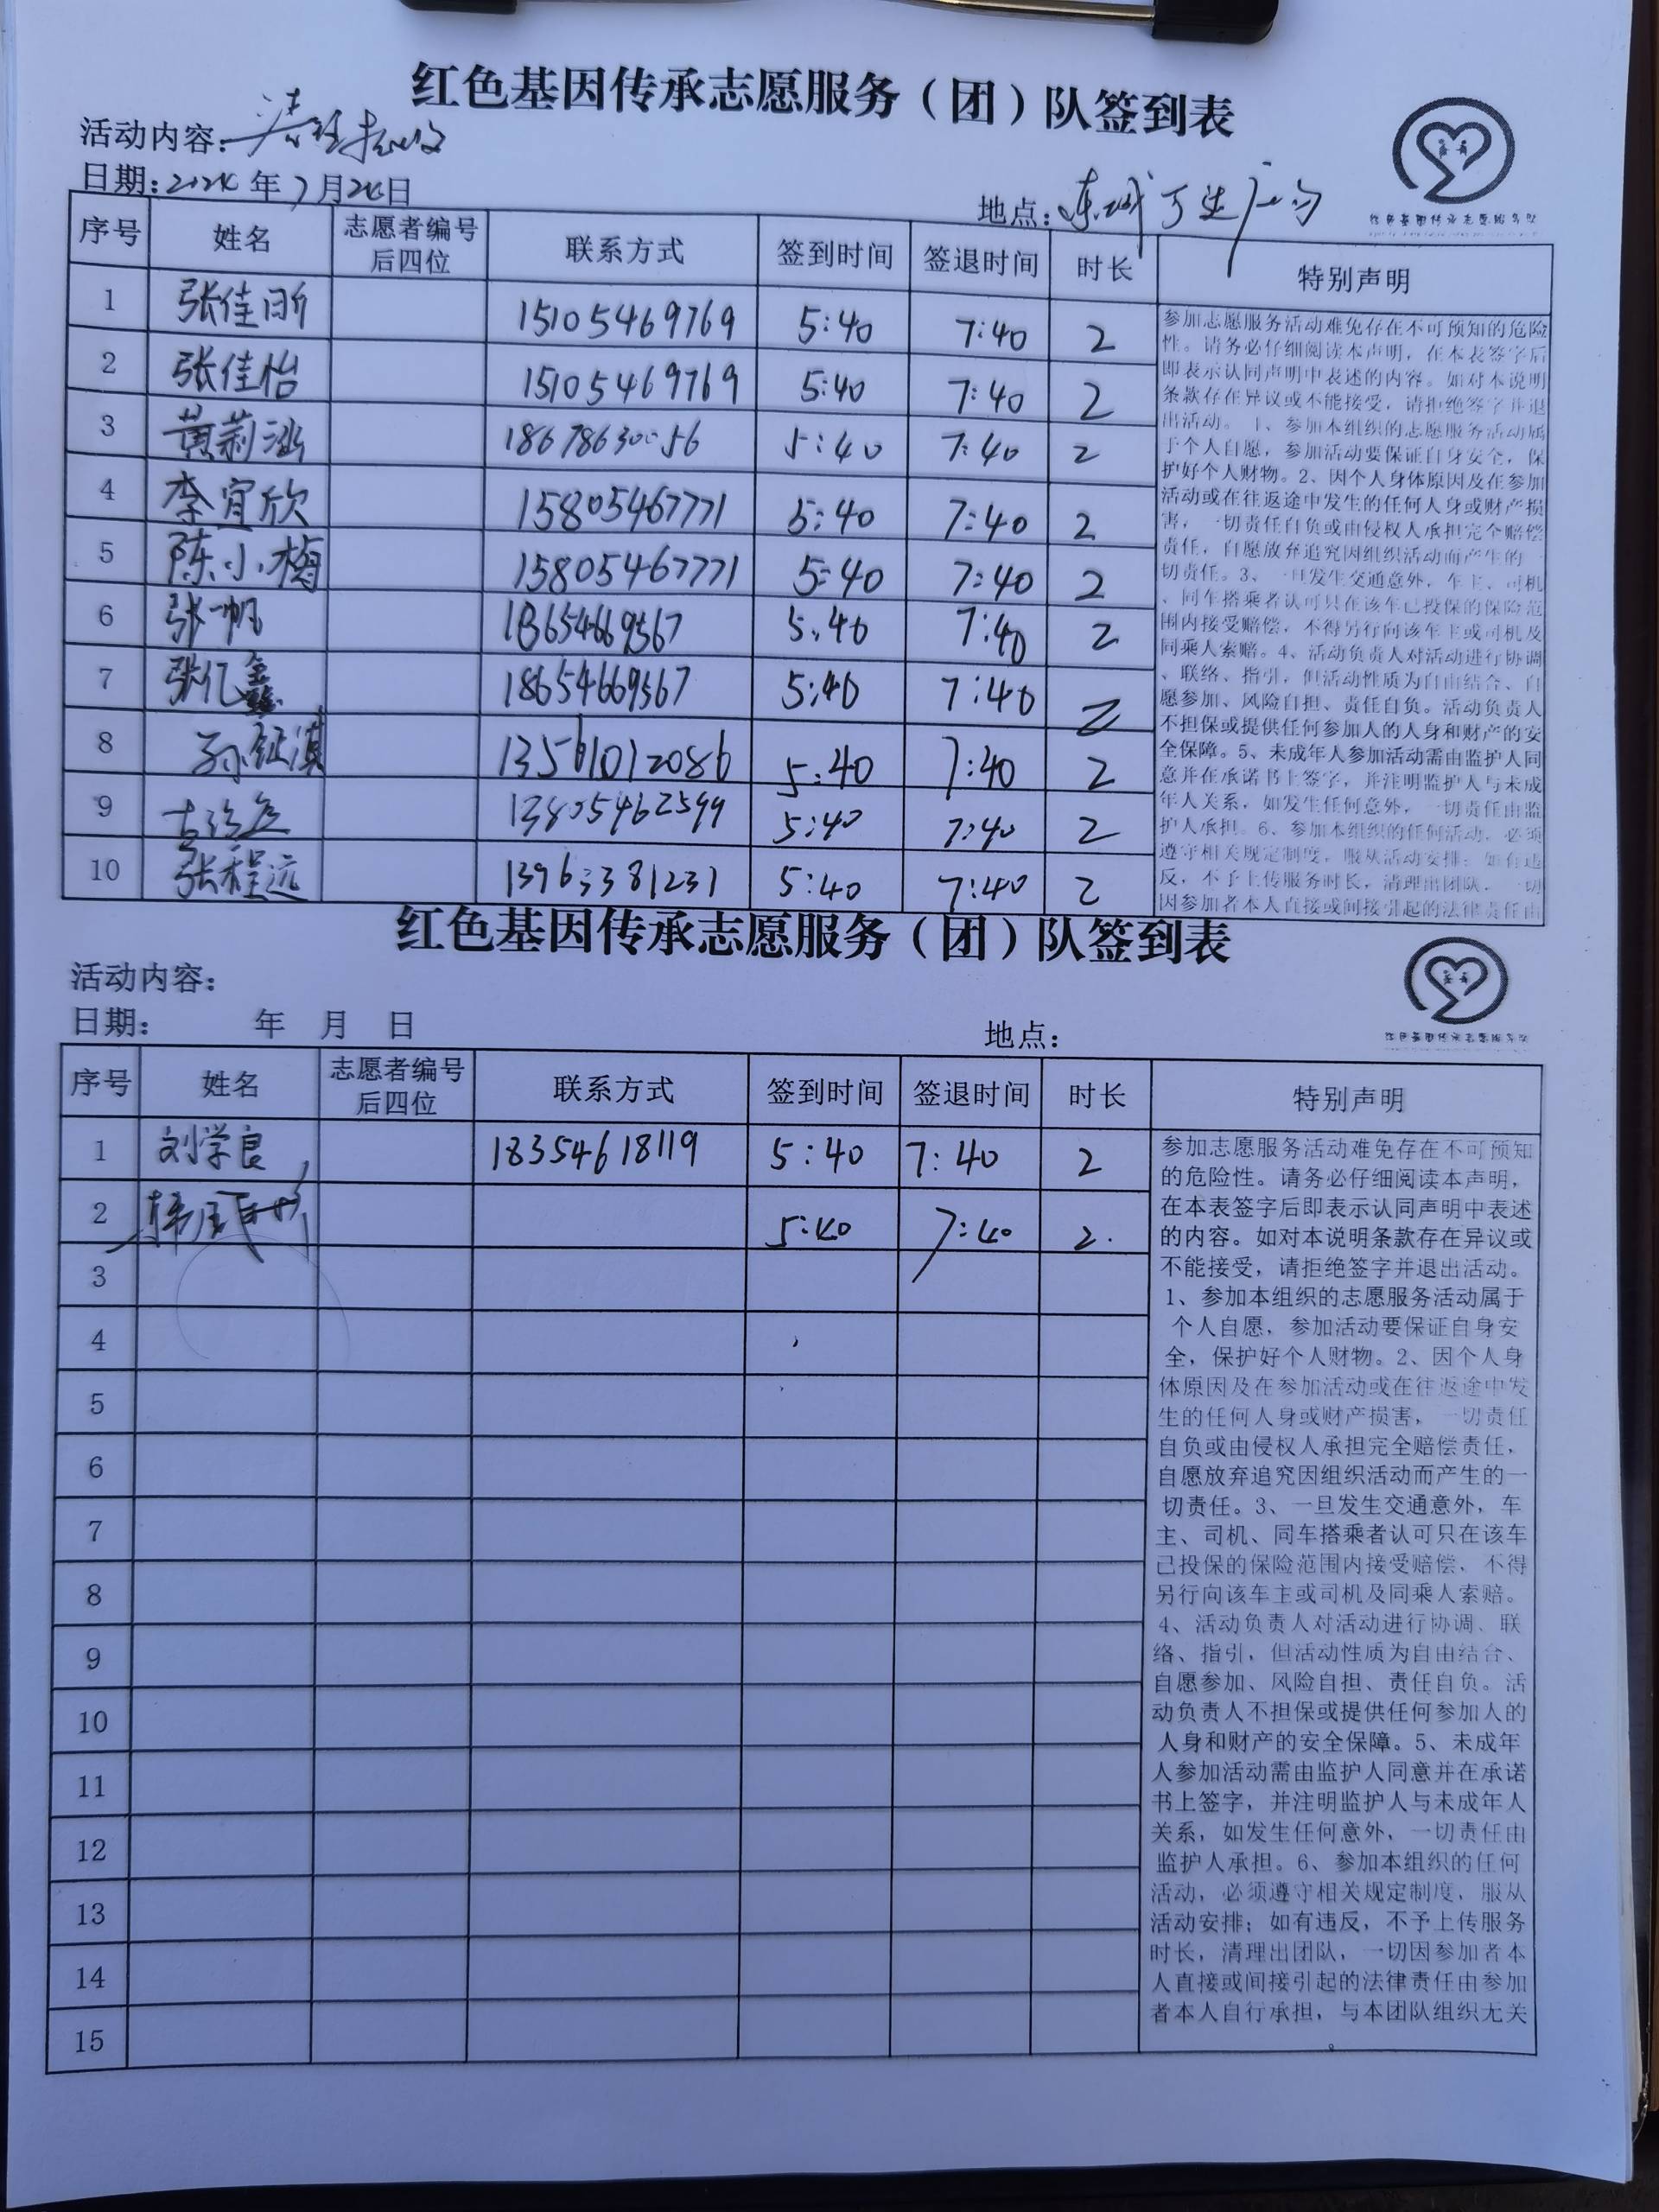 红色基因传承志愿服务（团）队签到表
活动内容：清理垃圾
日期：2024年7月24日
地点：东城
序号 姓名 志愿者编号后四位 联系方式 签到时间 签退时间 时长 特别声明
1 张佳昕 15105469769 5:40 7:40 2
2 张佳怡 15105469769 5:40 7:40 2
3 黄莉涵 5:40 7:40 2
4 李宜欣 15805467771 5:40 7:40 2
5 陈小梅 15805467771 5:40 7:40 2
6 张一帆 18654669567 5:40 7:40 2
7 张亿鑫 18654669567 5:40 7:40 2
8 孙钲淇 13561012086 5:40 7:40 2
9 13805462599 5:40 7:40 2
10 张程远 13963381231 5:40 7:40 2
参加志愿服务活动难免存在不可预知的危险
性。请务必仔细阅读本声明，在本表签字后
即表示认同声明中表述的内容。如对本说明
条款存在异议或不能接受，请拒绝签字并退
出活动。1、参加本组织的志愿服务活动属
于个人自愿，参加活动要保证自身安全，保
护好个人财物。2、因个人身体原因及在参加
活动或在往返途中发生的任何人身或财产损
害，一切责任自负或由侵权人承担完全赔偿
责任，自愿放弃追究因组织活动而产生的一
切责任。3、一旦发生交通意外，车主、司机
、同车搭乘者认可只在该车已投保的保险范
围内接受赔偿，不得另行向该车主或司机及
同乘人索赔。4、活动负责人对活动进行协调
、联络、指引，但活动性质为自由结合、自
愿参加、风险自担、责任自负。活动负责人
不担保或提供任何参加人的人身和财产的安
全保障。5、未成年人参加活动需由监护人同
意并在承诺书上签字，并注明监护人与未成
年人关系，如发生任何意外，一切责任由监
护人承担。6、参加本组织的任何活动，必须
遵守相关规定制度，服从活动安排；如有违
反，不予上传服务时长，清理出团队，一切
因参加者本人直接或间接引起的法律责任由
红色基因传承志愿服务（团）队签到表
活动内容：
日期： 年 月 日
地点：
序号 姓名 志愿者编号后四位 联系方式 签到时间 签退时间 时长 特别声明
1 刘学良 18354618119 5:40 7:40 2
2 5:40 7:40 2.
3
4
5
6
7
8
9
10
11
12
13
14
15
参加志愿服务活动难免存在不可预知
的危险性。请务必仔细阅读本声明，
在本表签字后即表示认同声明中表述
的内容。如对本说明条款存在异议或
不能接受，请拒绝签字并退出活动。
1、参加本组织的志愿服务活动属于
个人自愿，参加活动要保证自身安
全，保护好个人财物。2、因个人身
体原因及在参加活动或在往返途中发
生的任何人身或财产损害，一切责任
自负或由侵权人承担完全赔偿责任，
自愿放弃追究因组织活动而产生的一
切责任。3、一旦发生交通意外，车
主、司机、同车搭乘者认可只在该车
已投保的保险范围内接受赔偿，不得
另行向该车主或司机及同乘人索赔。
4、活动负责人对活动进行协调、联
络、指引，但活动性质为自由结合、
自愿参加、风险自担、责任自负。活
动负责人不担保或提供任何参加人的
人身和财产的安全保障。5、未成年
人参加活动需由监护人同意并在承诺
书上签字，并注明监护人与未成年人
关系，如发生任何意外，一切责任由
监护人承担。6、参加本组织的任何
活动，必须遵守相关规定制度，服从
活动安排；如有违反，不予上传服务
时长，清理出团队，一切因参加者本
人直接或间接引起的法律责任由参加
者本人自行承担，与本团队组织无关
。